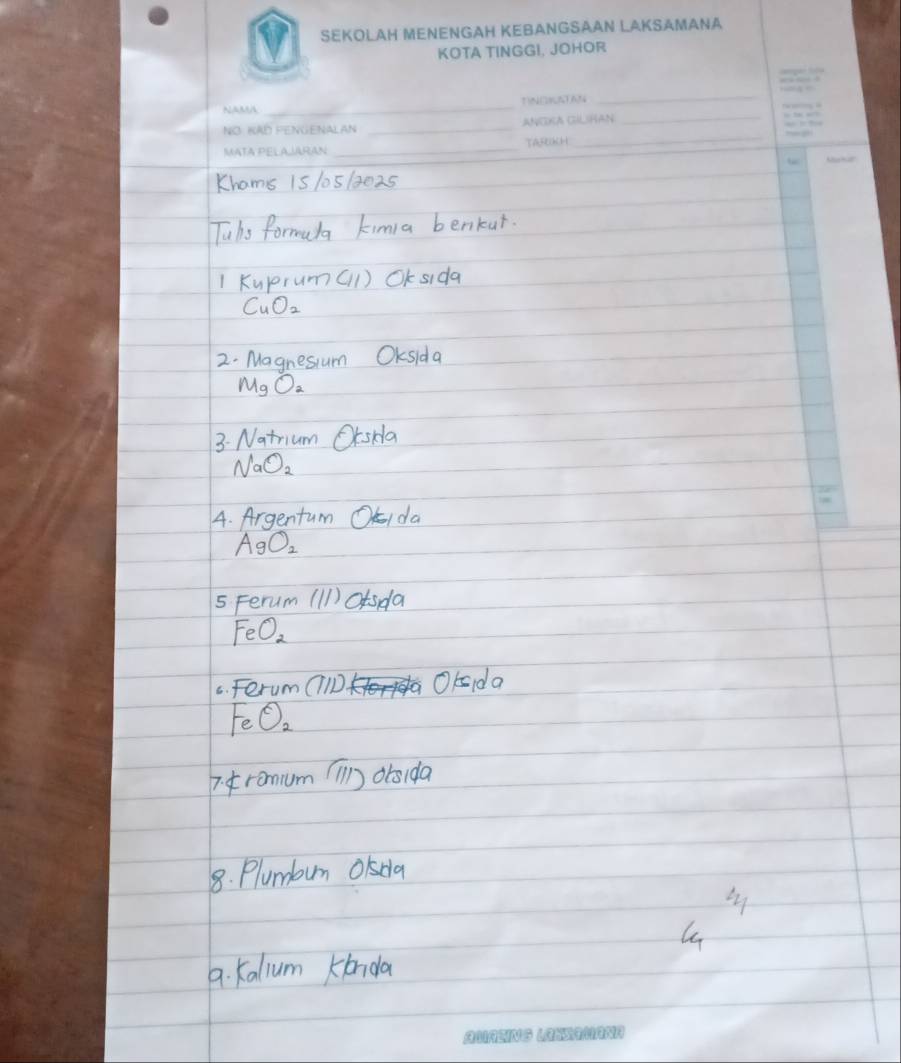 SEKOLAH MENENGAH KEBANGSAAN LAKSAMANA
KOTA TINGGI, JOHOR
NAMA
TINGKATAN
NO. KAD PENGENALAN
ANGKA GILIRAN
MATA PELAJARAN
TARIKH
Khamis 15/05/2025
Tulis formula kimia berikut.
1 Kuprum (II) Oksida
CuO₂
2. Magnesium Oksida
MgO₂
3. Natrium Oksida
NaO₂
4. Argentum Oksida
AgO₂
5 Ferum (II) Oksida
FeO₂
6. Ferum (III) Klorida Oksida
FeO₂
7. Kromium (III) oksida
8. Plumbum Oksida
9. Kalium Klorida
AMAZING LAKSAMANA